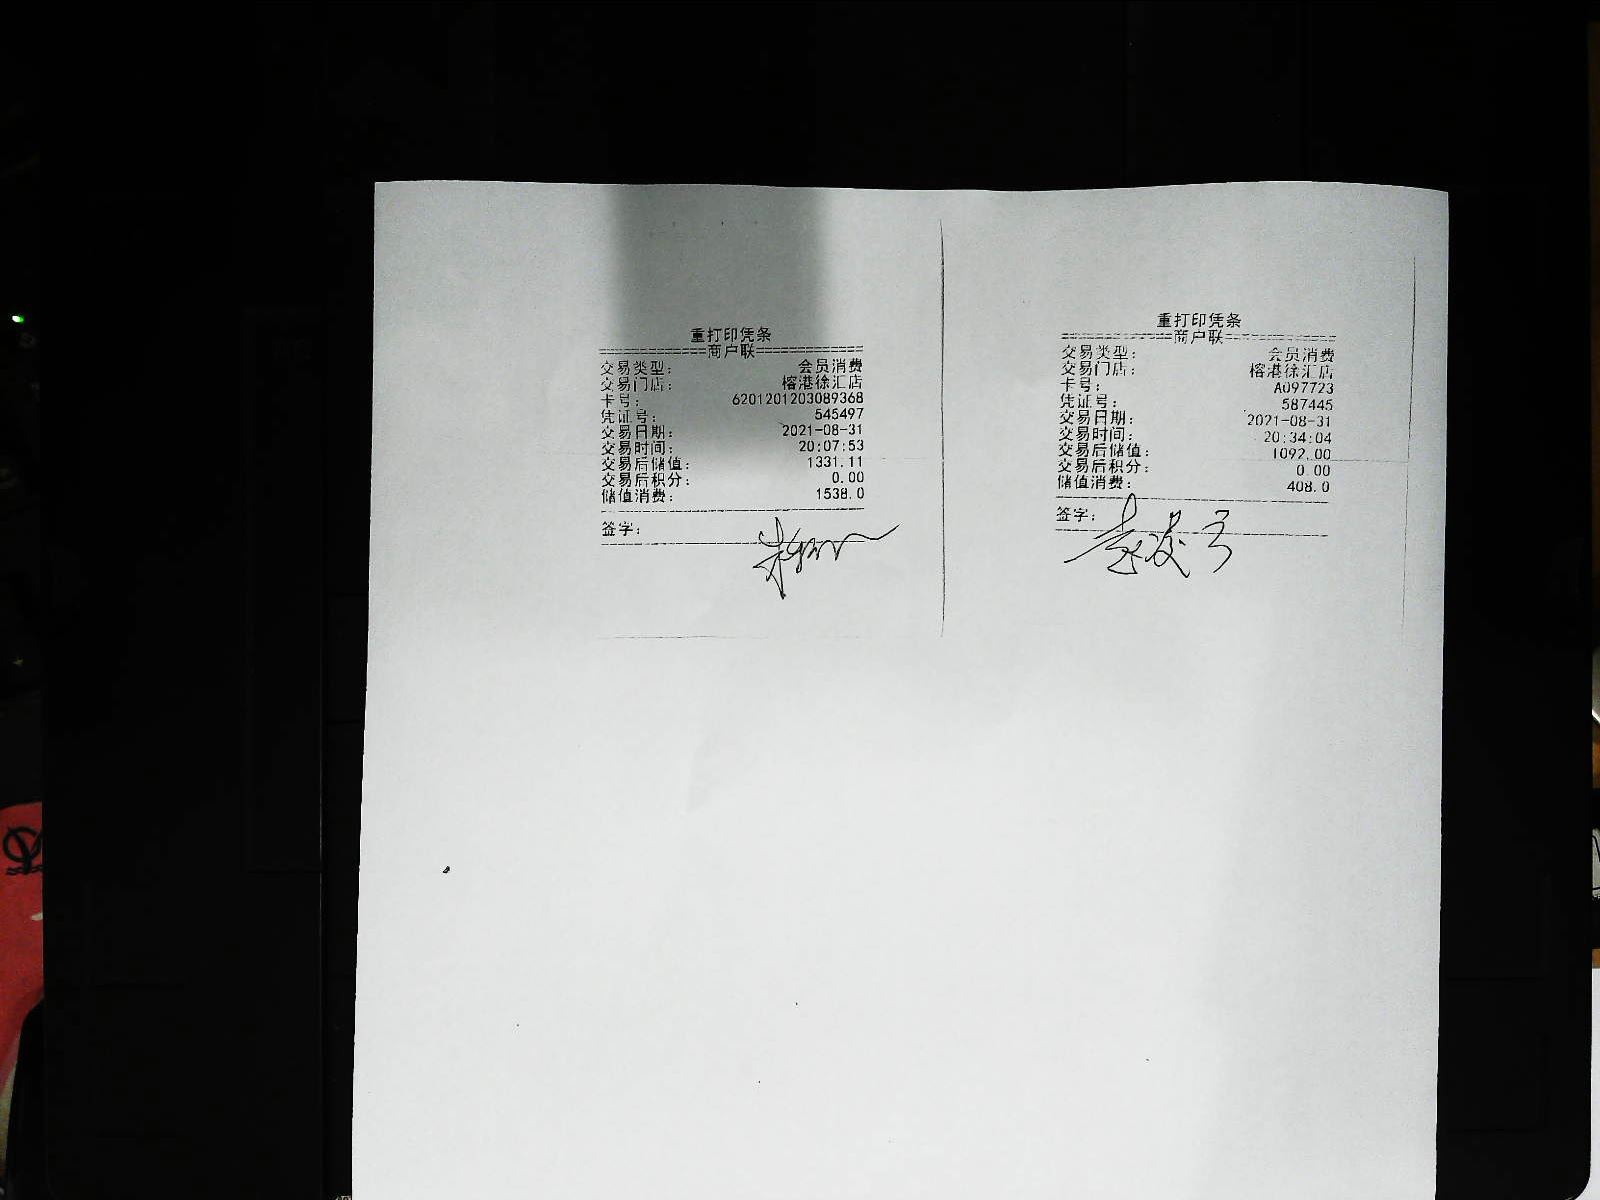 重打印凭条
==========商户联==========
交易类型： 会员消费
交易门店： 榕港徐汇店
卡号： 6201201203089368
凭证号： 545497
交易日期： 2021-08-31
交易时间： 20:07:53
交易后储值： 1331.11
交易后积分： 0.00
储值消费： 1538.0
签字：
重打印凭条
==========商户联==========
交易类型： 会员消费
交易门店： 榕港徐汇店
卡号： A097723
凭证号： 587445
交易日期： 2021-08-31
交易时间： 20:34:04
交易后储值： 1092.00
交易后积分： 0.00
储值消费： 408.0
签字：